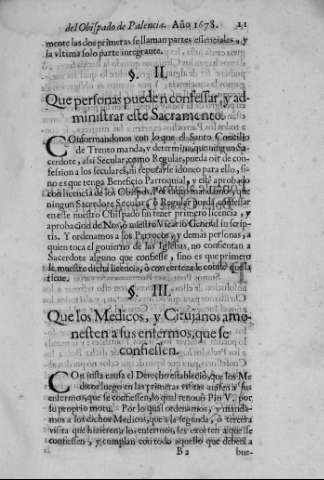 del Obispado de Palencia. Año 1678. 21
mente las dos primeras se llaman partes essenciales, y
la vltima solo parte integrante.
§. II.
Que personas pueden confessar, y ad-
ministrar este Sacramento.
COnformandonos con lo que el Santo Concilio
de Trento manda, y determina, que ningun Sa-
cerdote, assi Secular, como Regular, pueda oir de con-
fession a los seculares, ni reputarse idoneo para ello, si-
no es que tenga Beneficio Parroquial, y estè aprobado
con licencia de su Obispo. Y mandamos, que
ningun Sacerdote Secular, ò Regular pueda confessar
en este nuestro Obispado sin tener primero licencia, y
aprobacion de Nos, ò nuestro Vicario General in scrip-
tis. Y ordenamos a los Parrocos, y demàs personas, a
quien toca el gouierno de las Iglesias, no consientan a
Sacerdote alguno que confiesse, sino es que primero
le muestre dicha licencia, ò con certeza le conste que la
tiene.
§. III.
Que los Medicos, y Cirujanos amo-
nesten a sus enfermos, que se
confiessen.
COn justa causa el Derecho estableciò, que los Me-
dicos luego en las primeras visitas auisen a sus
enfermos, que se confiessen, lo qual renouò Pio V. por
su proprio motu. Por lo qual ordenamos, y manda-
mos a los dichos Medicos, que a la segunda, ò tercera
visita que hizieren a los enfermos, les exorten a que se
confiessen, y cumplan con todo aquello que deben a
B 2 bue-